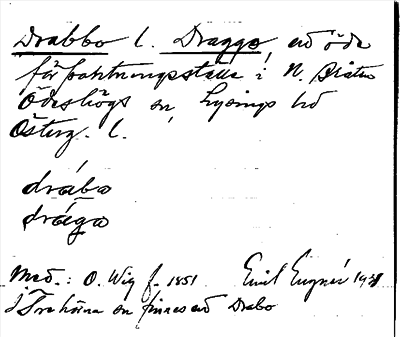 Drabbo l. Draggo, en öde
förpaktningsställe i N.
Ödeshögs sn, Lysings hd
Österg. l.
drábo
drágo
Med.: O. Wig f. 1851 Emil Eugnér
I Trehörna sn finnes ett Drabo